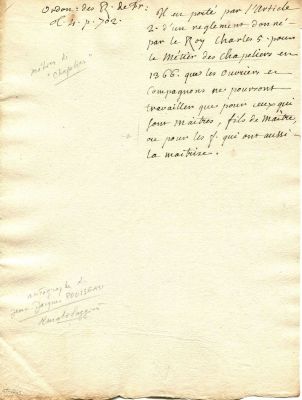 Ordon: des R. de Fr:
H 4. p. 702.
Il est porté par l'Article
2. d'un reglement donné
par le Roy Charles 5. pour
le Métier des Chapeliers en
1366. que les ouvriers en
Compagnons ne pourront
travailler que pour ceux qui
sont Maitres, fils de Maitre,
ou pour les f. qui ont aussi
la maitrise.
métier de
"Chapelier"
autographe de
Jean-Jacques ROUSSEAU